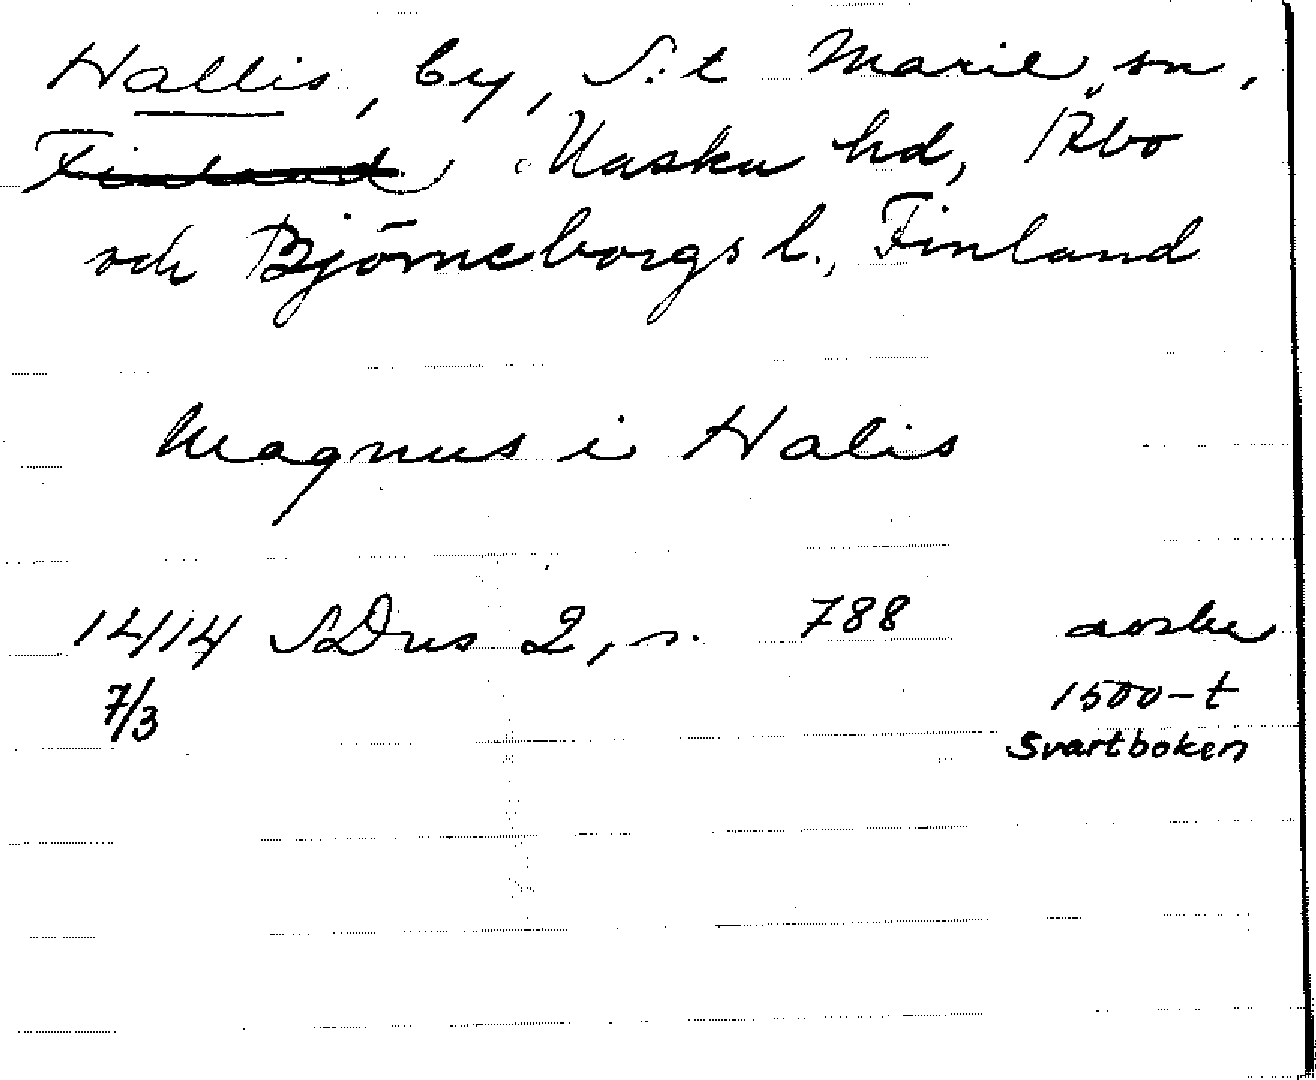 Hallis, by, S:t Marie sn,
Finland Masku hd, Åbo
och Björneborgs l., Finland
Magnus i Halis
1414 SDns 2, s. 788 avskr
7/3 1500-t
Svartboken